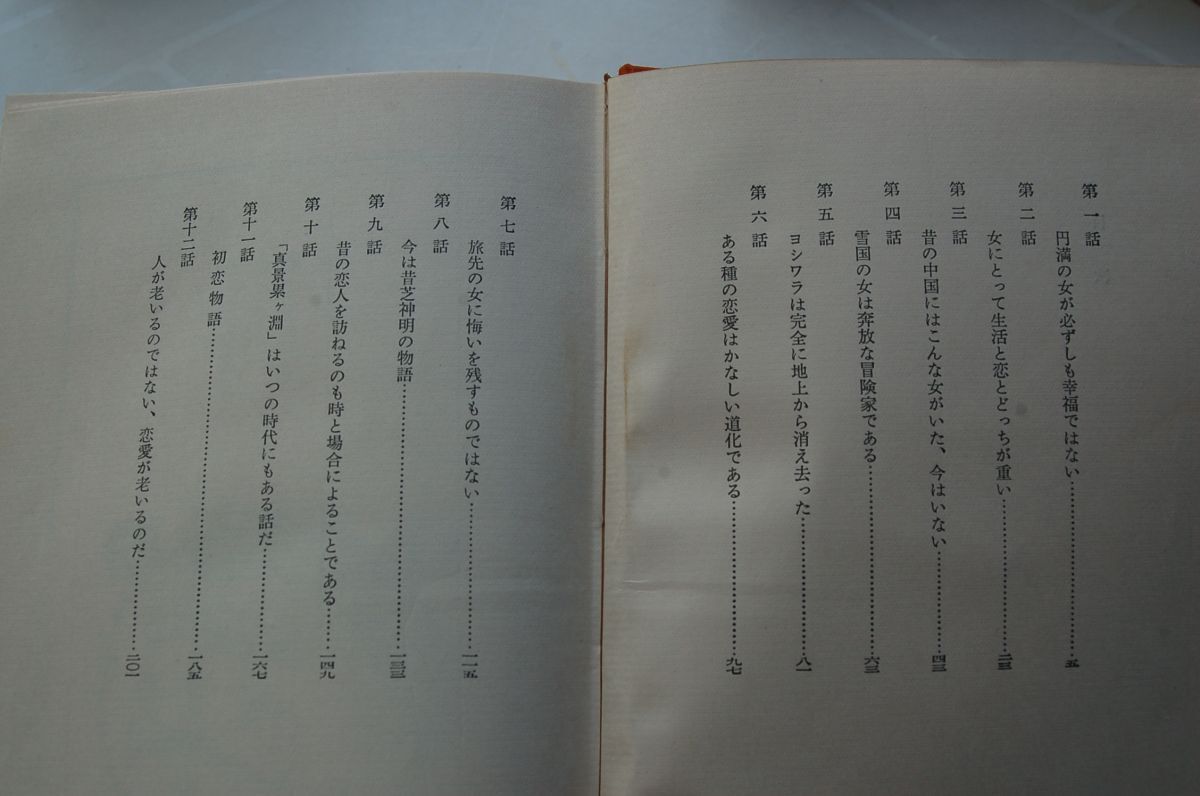 第一話
円満の女が必ずしも幸福ではない……………………五
第二話
女にとって生活と恋とどっちが重い…………………二三
第三話
昔の中国にはこんな女がいた、今はいない…………四三
第四話
雪国の女は奔放な冒険家である………………………六三
第五話
ヨシワラは完全に地上から消え去った………………八一
第六話
ある種の恋愛はかなしい道化である…………………九七
第七話
旅先の女に悔いを残すものではない…………………一一五
第八話
今は昔芝神明の物語……………………………………一三三
第九話
昔の恋人を訪ねるのも時と場合によることである……一四九
第十話
「真景累ヶ淵」はいつの時代にもある話だ……………一六七
第十一話
初恋物語…………………………………………………一八五
第十二話
人が老いるのではない、恋愛が老いるのだ…………二〇一